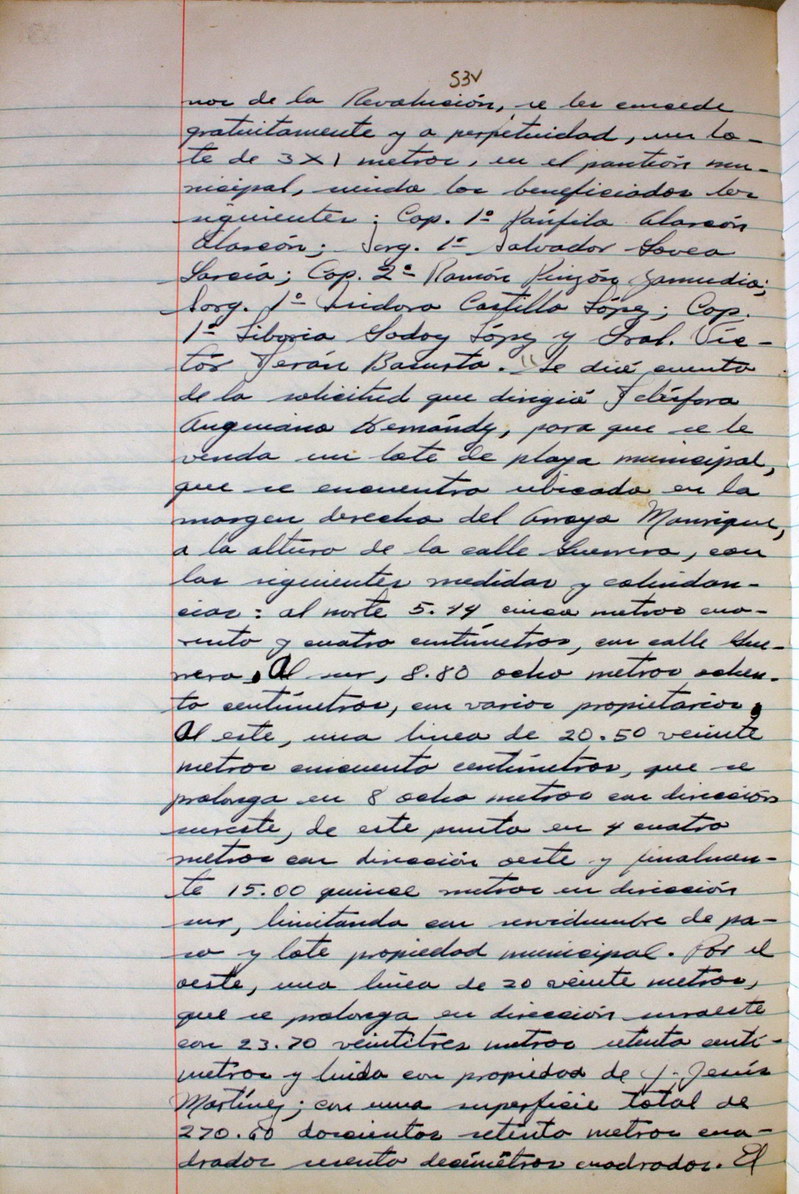 53v
nos de la Revolución, se les concede
gratuitamente y a perpetuidad, un lo-
te de 3 X 1 metros, en el panteón mu-
nicipal, siendo los beneficiados los
siguientes: Cap. 1º Pánfilo Alarcón
Alarcón; Sarg. 1º Salvador Govea
García; Cap. 2º Ramón Pinzón Zamudio;
Sarg. 1º Isidoro Castillo López; Cap.
1º Liborio Godoy López y Gral. Víc-
tor Terán Basusto. = Se dió cuenta
de la solicitud que dirigió Telésfora
Anguiano Hernández, para que se le
venda un lote de playa municipal,
que se encuentra ubicado en la
margen derecha del Arroyo Manrique,
a la altura de la calle Guerrero, con
las siguientes medidas y colindan-
cias: al norte 5.44 cinco metros cua-
renta y cuatro centímetros, con calle Gue-
rrero, Al sur, 8.80 ocho metros ochen-
ta centímetros, con varios propietarios,
Al este, una línea de 20.50 veinte
metros cincuenta centímetros, que se
prolonga en 8 ocho metros con dirección
sureste, de este punto en 4 cuatro
metros con dirección oeste y finalmen-
te 15.00 quince metros en dirección
sur, limitando con servidumbre de pa-
so y lote propiedad municipal. Por el
oeste, una línea de 20 veinte metros,
que se prolonga en dirección suroeste
con 23.70 veintitres metros setenta centí-
metros y linda con propiedad de J. Jesús
Martínez; con una superficie total de
270.60 doscientos setenta metros cua-
drados sesenta decímetros cuadrados. El